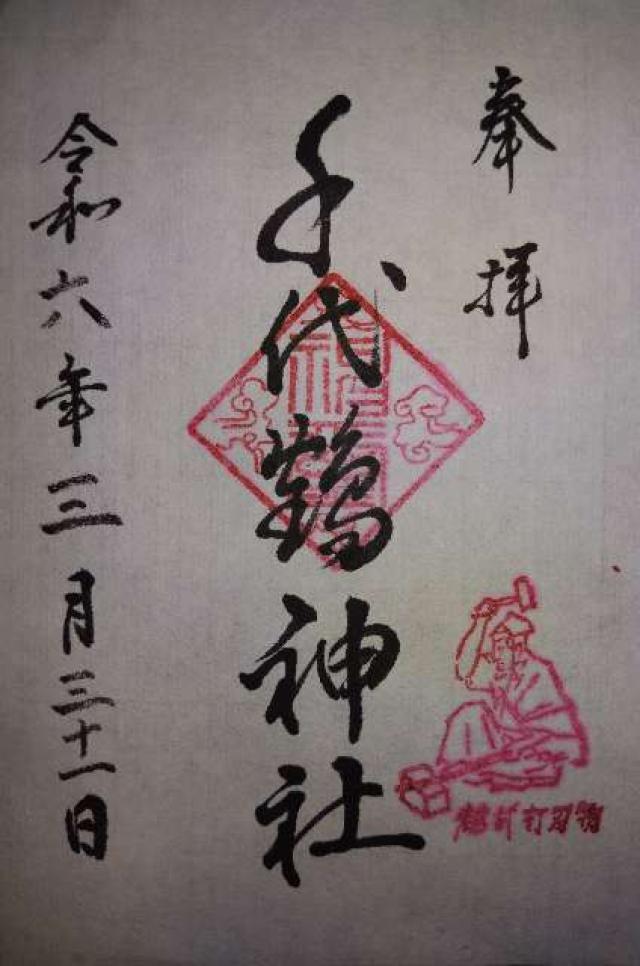 奉拝
千代鶴神社
越前打刃物
令和六年三月三十一日